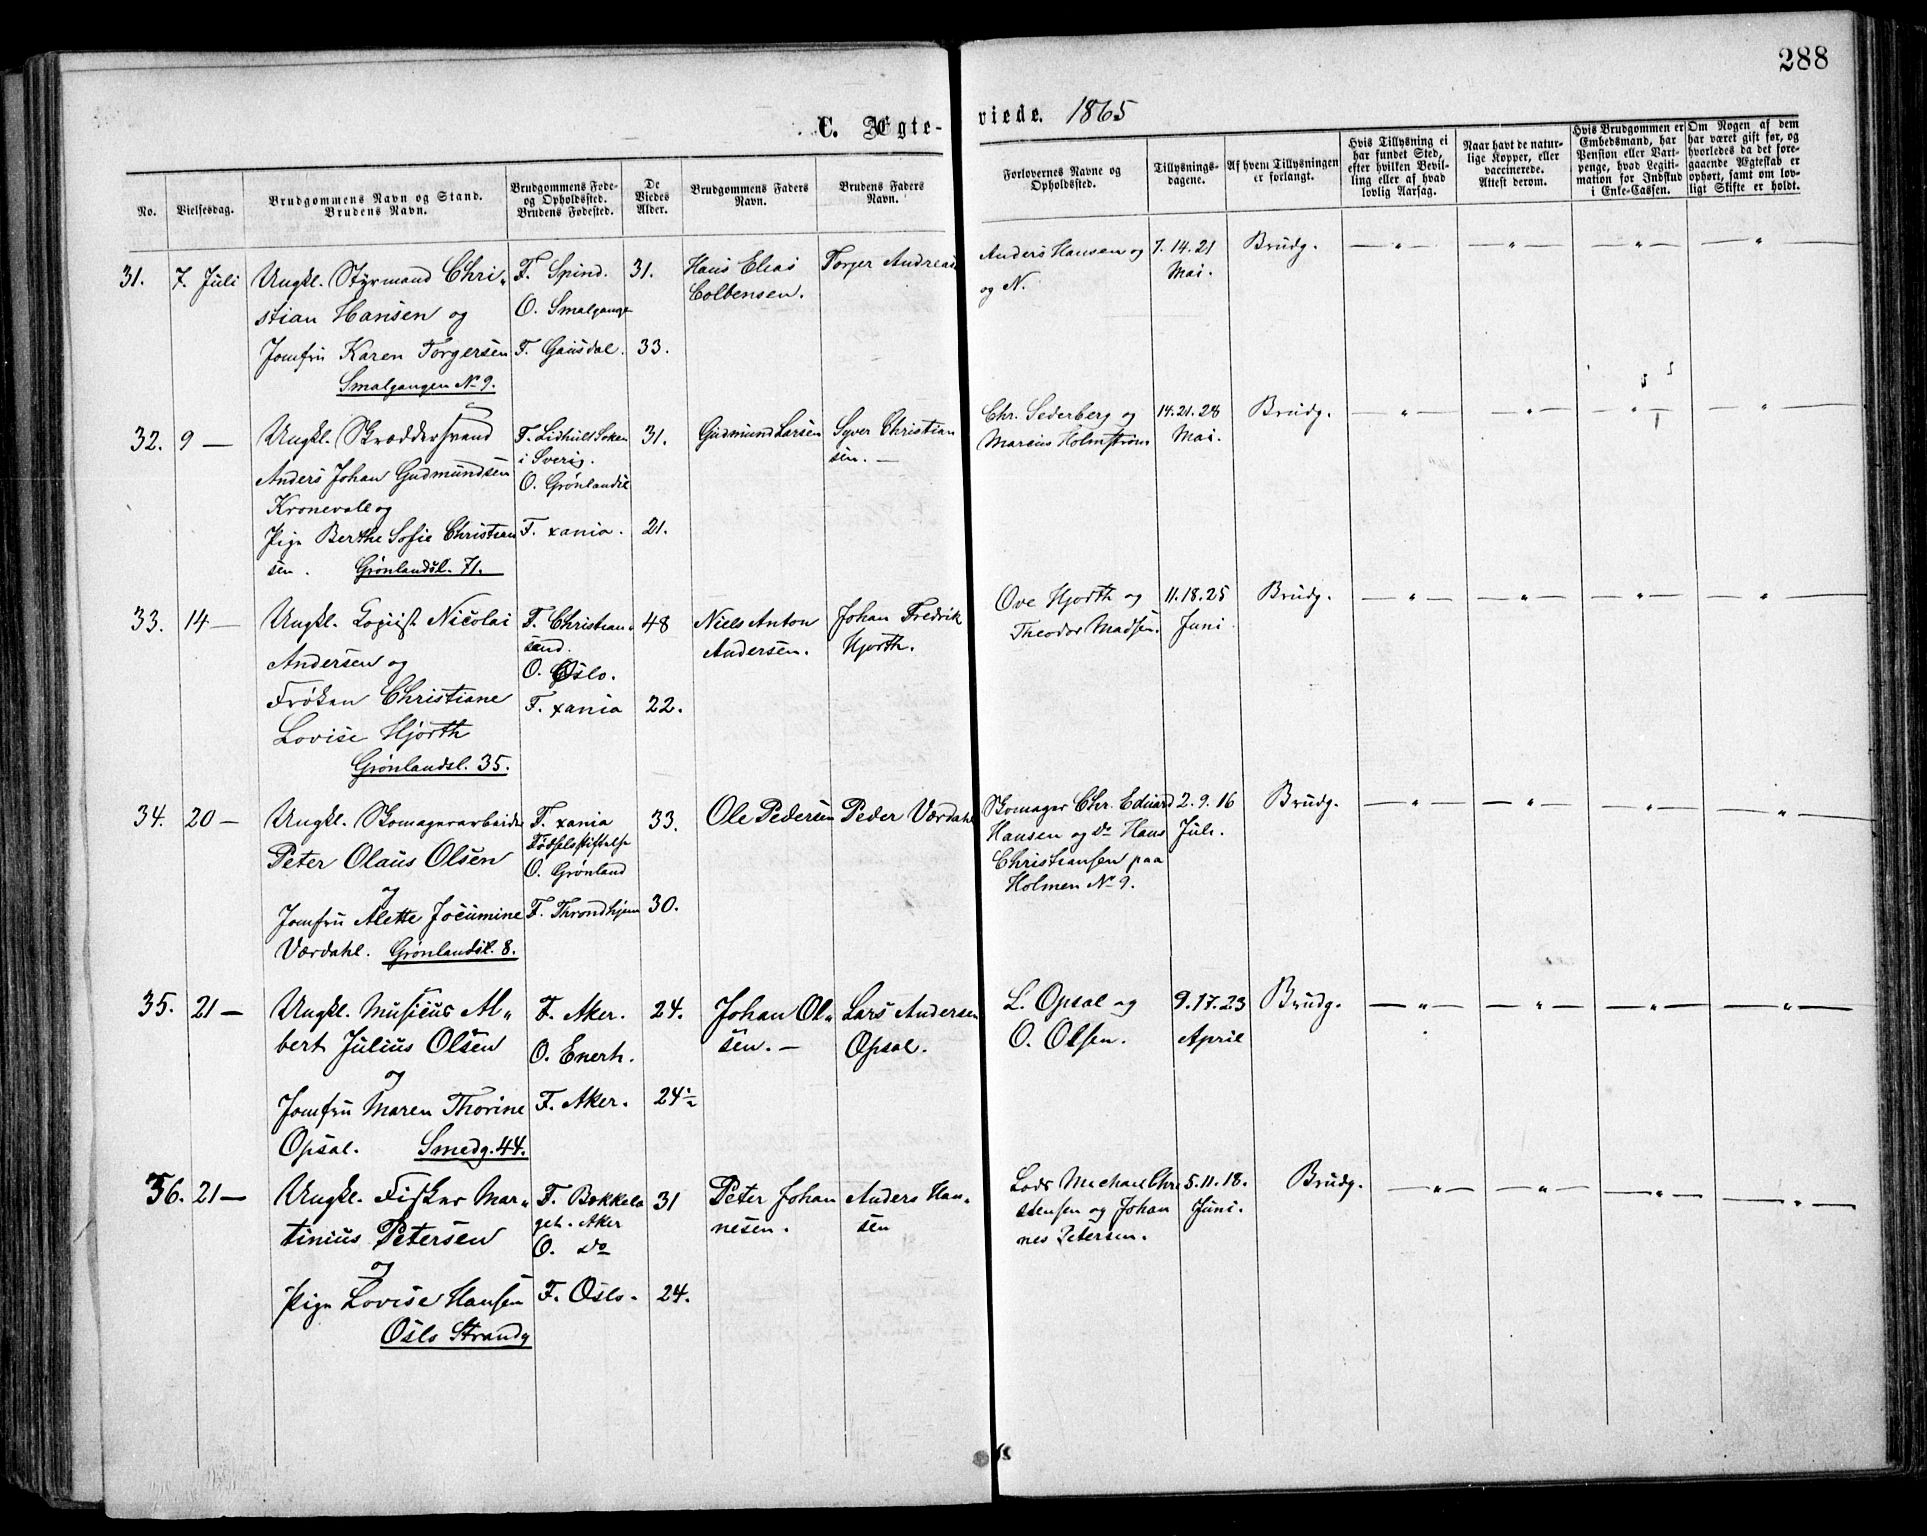 288
C. Ægteviede. 1865
No.
Vielsesdag.
Brudgommens Navn og Stand.
Brudens Navn.
Brudgommens Føde-
og Opholdssted.
Brudens Fødested.
De
Viedes
Alder.
Brudgommens Faders
Navn.
Brudens Faders
Navn.
Forlovernes Navne og
Opholdssted.
Tillysnings-
dagene.
Af hvem Tillysningen
er forlangt.
Hvis Tillysning ei
har fundet Sted,
efter hvilken Bevil-
ling eller af hvad
lovlig Aarsag.
Naar havt de natur-
lige Kopper, eller
vaccinerede.
Attest derom.
Hvis Brudgommen er
Embedsmand, har
Pension eller Vart-
penge, hvad Legiti-
mation for Indskud
i Enke-Cassen.
Om Nogen af dem
har været gift før, og
hvorledes da det fore-
gaaende Ægteskab er
ophørt, samt om lov-
ligt Skifte er holdt.
31. 7. Juli
Ungkl. Styrmand Chri-
stian Hansen og
Jomfru Karen Torgersen
Smalgangen No 9.
F. Spind.
O. Smalgange
F. Gausdal.
31.
33.
Hans Elias
Colbensen.
Torger Andreas
Anders Hansen og
og N.
7. 14. 21
Mai.
Brudg.
— " — — " — — " — — " —
32. 9 —
Ungkl. Skræddersvend
Anders Johan Gudmundsen
Kronevall og
Pige Berthe Sofie Christian
sen. Grønlandsl. 71.
F. Lidhult Soken
i Sverig.
O. Grønlandsl
F. xania.
31.
21.
Gudmund Larsen
Syver Christian
sen. —
Chr. Sederberg og
Marcus Holmstrøm
14. 21. 28
Mai.
Brudg.
— " — — " — — " — — " —
33. 14 —
Ungkl. Logist Nicolai
Andersen og
Frøken Christiane
Lovise Hjorth
Grønlandsl. 35.
F. Christian-
sand.
O. Oslo.
F. xania
48
22.
Niels Anton
Andersen.
Johan Fredrik
Hjorth.
Ove Hjorth og
Theodor Madsen.
11. 18. 25
Juni.
Brudg.
— " — — " — — " — — " —
34. 20 —
Ungkl. Skomagerarbeider
Peter Olaus Olsen
og
Jomfru Alette Jocumine
Værdahl. Grønlandsl. 8.
F. xania
Fødselsstiftelse
O. Grønland
F. Throndhjem
33.
30.
Ole Pedersen
Peder Værdahl
Skomager Chr. Eduard
Hansen og Do Hans
Christiansen paa
Holmen No 9.
2. 9. 16
Juli.
Brudg.
— " — — " — — " — — " —
35. 21 —
Ungkl. Musicus Al-
bert Julius Olsen
og
Jomfru Maren Thorine
Opsal. Smedg. 44.
F. Aker.
O. Enerh.
F. Aker.
24.
24 ½
Johan Ol-
sen. —
Lars Andersen
Opsal.
L. Opsal og
O. Olsen.
9. 17. 23
April
Brudg.
— " — — " — — " — — " —
36. 21 —
Ungkl. Fisker Mar-
tinius Petersen
og
Pige Lovise Hansen
Oslo Strandg
F. Bækkela
get. Aker
O. Do
F. Oslo.
31
24.
Peter Johan
nesen.
Anders Han-
sen
Lods Michael Chri
stensen og Johan
nes Petersen.
5. 11. 18.
Juni.
Brudg.
— " — — " — — " — — " —